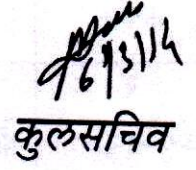 6/3/14
कुलसचिव